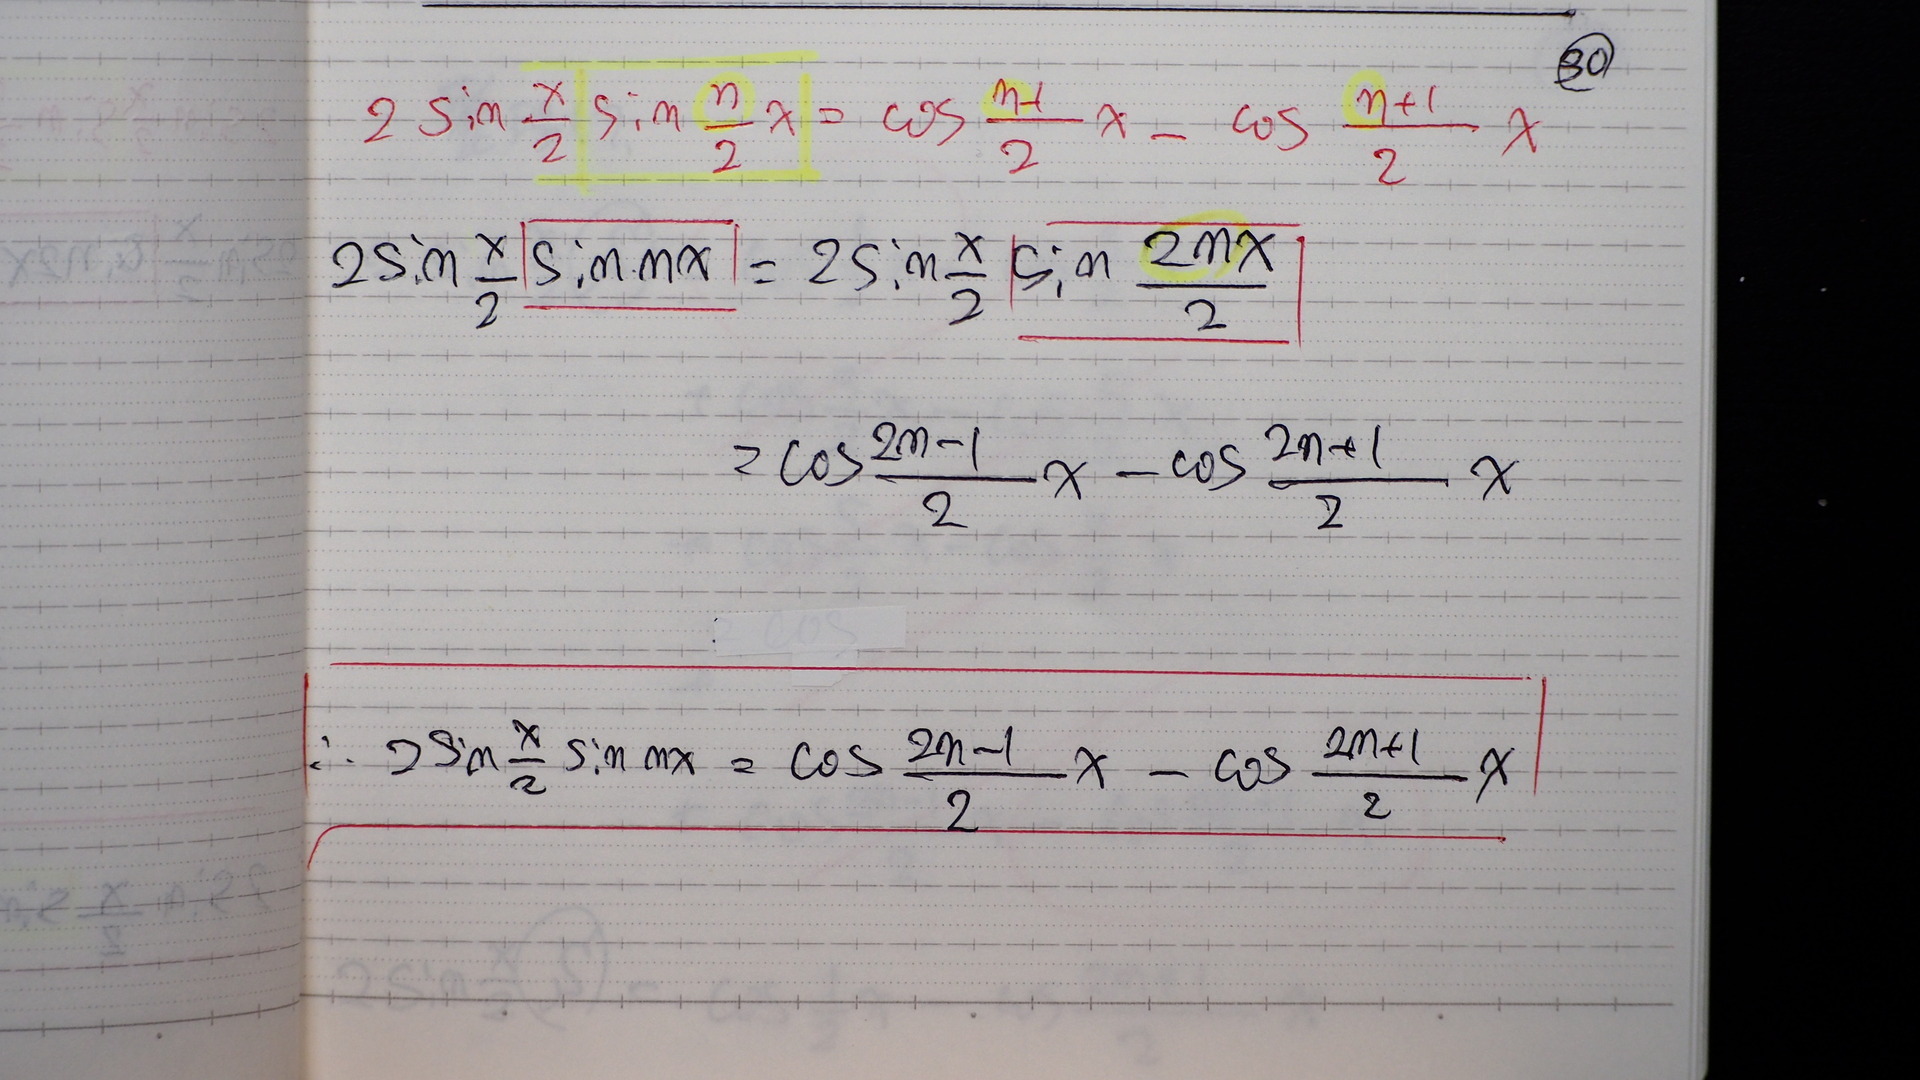 30
2 sin x/2 sin n/2 x = cos n-1/2 x - cos n+1/2 x
2 sin x/2 sin nx = 2 sin x/2 sin 2nx/2
= cos 2n-1/2 x - cos 2n+1/2 x
∴ 2 sin x/2 sin nx = cos 2n-1/2 x - cos 2n+1/2 x